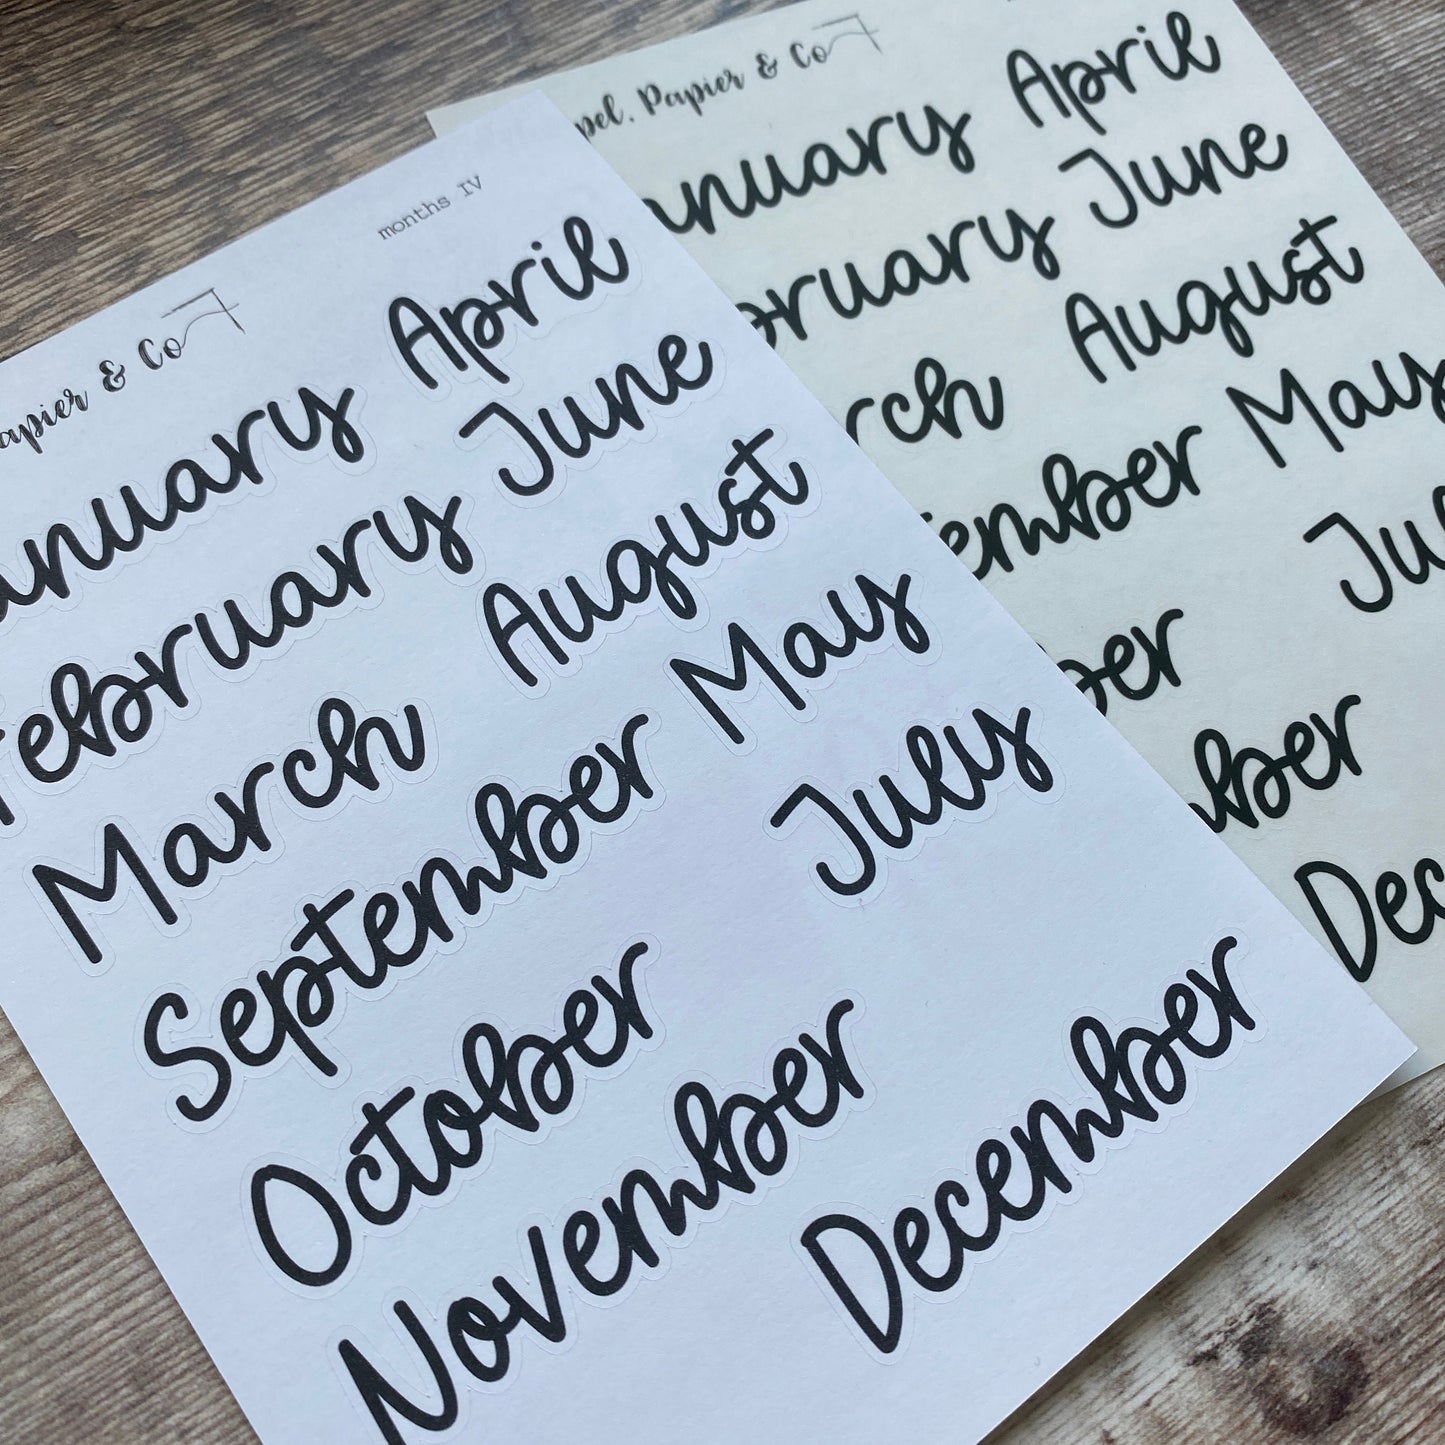 Papier & Co
months IV
January April
February June
March August
September May
October July
November December
pel. Papier & Co
January April
February June
March August
September May
ber Jul
mber
Dec